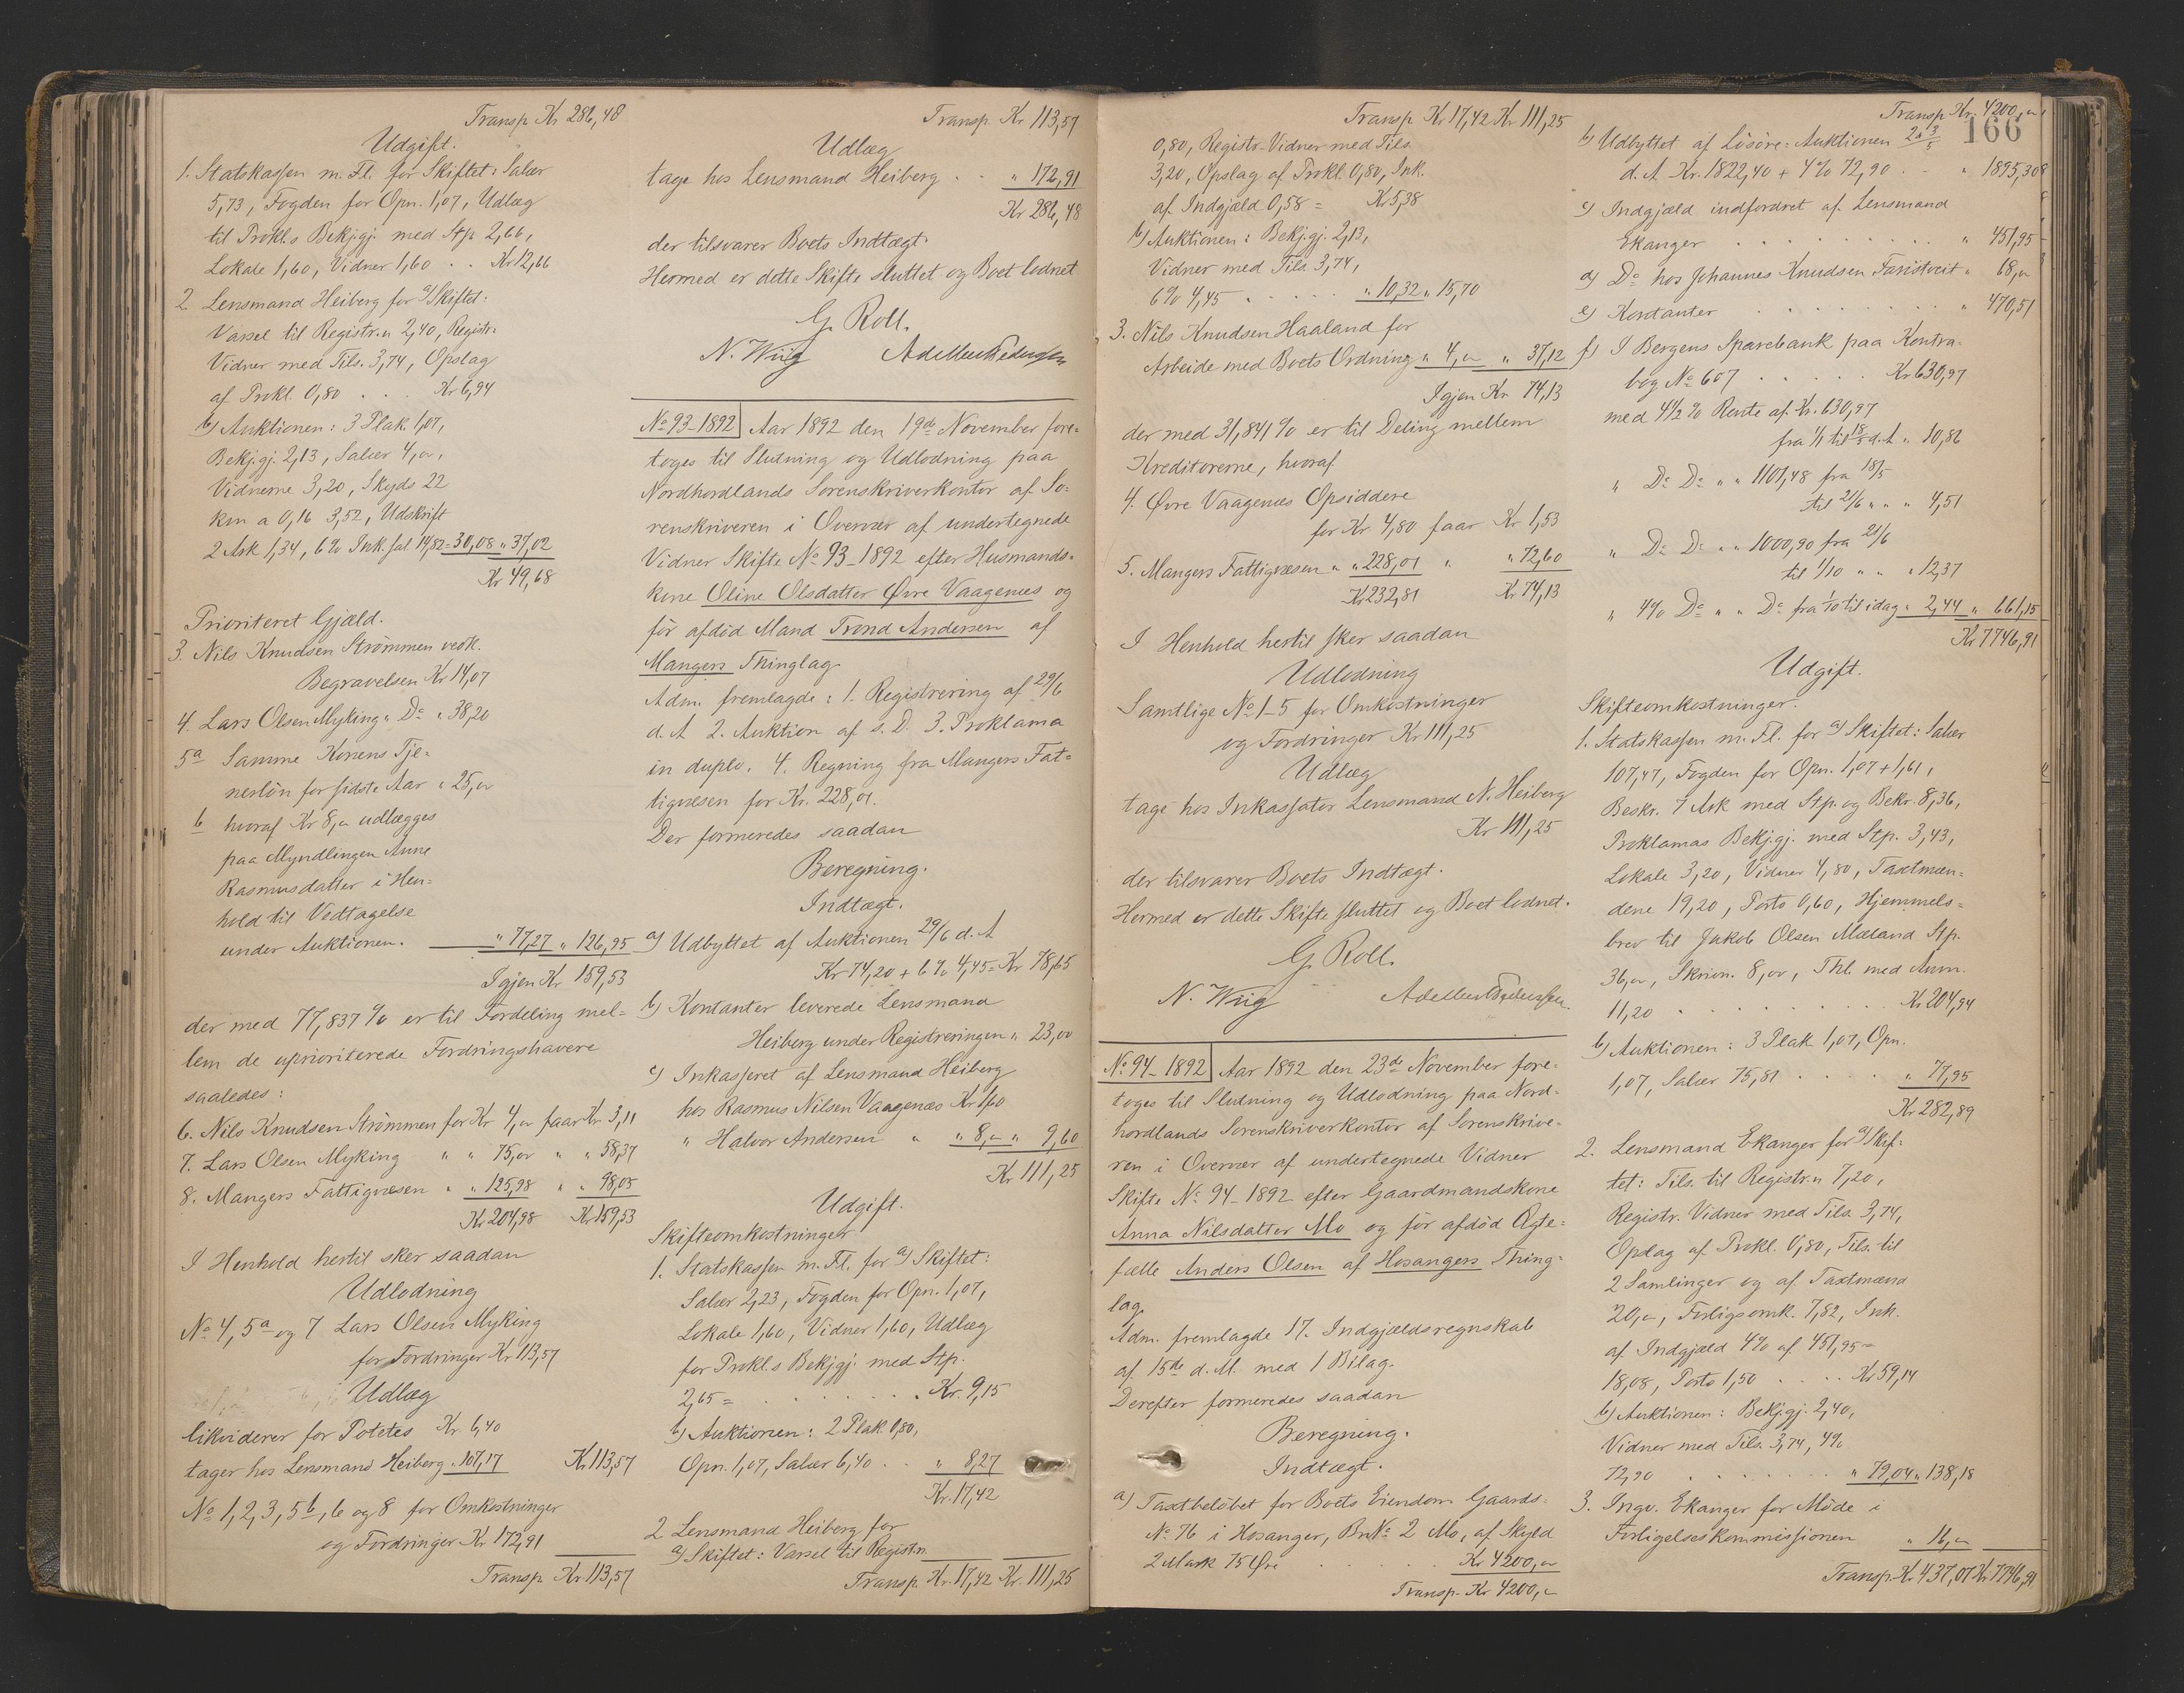 Transp. Kr 286,48
Udgift.
1. Statskassen m. Fl. for Skiftet: Salær
5,73, Fogden for Opn. 1,07, Udlæg
til Prokl.s Bekjgj. med Stp. 2,66,
Lokale 1,60, Vidner 1,60 . . Kr 12,66
2. Lensmand Heiberg for a) Skiftet:
Varsel til Registr.n 2,40, Registr.
Vidner med Tils. 3,74, Opslag
af Prokl. 0,80 . . . Kr 6,94
b) Auktionen: 3 Plak 1,07,
Bekj.gj. 2,13, Salær 4,„,
Vidnerne 3,20, Skyds 22
km a 0,16 3,52, Udskrift
2 Ark 1,34, 6% Ink.sal 14,82 = 30,08 „ 37,02
Kr 49,68
Prioriteret Gjæld.
3. Nils Knudsen Strømmen vedk.
Begravelsen Kr 14,07
4. Lars Olsen Myking „ Do „ 38,20
5a Samme Konens Tje-
nerløn for sidste Aar „ 25,„
b hvoraf Kr 8,„ udlægges
paa Myndlingen Anne
Rasmusdatter i Hen-
hold til Vedtagelse
under Auktionen. „ 77,27 „ 126,95
Igjen Kr 159,53
der med 77,837% er til Fordeling mel-
lem de uprioriterede Fordringshavere
saaledes:
6. Nils Knudsen Strømmen for Kr 4,„ faar Kr 3,11
7. Lars Olsen Myking „ „ 75,„ „ „ 58,37
8. Mangers Fattigvæsen „ „ 125,98 „ „ 98,05
Kr 204,98 Kr 159,53
I Henhold hertil sker saadan
Udlodning
No 4, 5a og 7 Lars Olsen Myking
for Fordringer Kr 113,57
Udlæg
likviderer for Potetes Kr. 6,40
tager hos Lensmand Heiberg „ 107,17 Kr 113,57
No 1, 2, 3, 5b, 6 og 8 for Omkostninger
og Fordringer Kr 172,91
Transp. Kr. 113,57
Transp. Kr 113,57
Udlæg
tage hos Lensmand Heiberg . . „ 172,91
Kr 286,48
der tilsvarer Boets Indtægt.
Hermed er dette Skifte sluttet og Boet lodnet
G. Roll.
N. Wiig Adelbert Pedersen
No 93-1892 Aar 1892 den 19de November fore-
toges til Slutning og Udlodning paa
Nordhordlands Sorenskriverkontor af So-
renskriveren i Overvær af undertegnede
Vidner Skifte No 93-1892 efter Husmands-
kone Oline Olsdatter Øvre Vaagenæs og
før afdød Mand Trond Andersen af
Mangers Thinglag.
Adm. fremlagde: 1. Registrering af 29/6
d. A. 2. Auktion af s. D. 3. Proklama
in duplo. 4. Regning fra Mangers Fat-
tigvæsen for Kr. 228,01.
Der formeredes saadan
Beregning.
Indtægt.
a) Udbyttet af Auktionen 29/6 d. A
Kr 74,20 + 6% 4,45 = Kr 78,65
b) Kontanter leverede Lensmand
Heiberg under Registreringen „ 23,00
c) Inkasseret af Lensmand Heiberg
hos Rasmus Nilsen Vaagenæs Kr 1,60
„ Halvor Andersen „ „ 8,„ „ 9,60
Kr 111,25
Udgift.
Skifteomkostninger
1. Statskassen m. Fl. for a) Skiftet:
Salær 2,23, Fogden for Opn. 1,07,
Lokale 1,60, Vidner 1,60, Udlæg
for Prokl.s Bekjgj. med Stp.
2,65 = . . . . . . Kr. 9,15
b) Auktionen: 2 Plak 0,80,
Opn. 1,07, Salær 6,40 . . „ 8,27
Kr. 17,42
2. Lensmand Heiberg for
a) Skiftet: Varsel til Registr.n
Transp. Kr. 17,42 Kr. 111,25
Transp. Kr 17,42 Kr. 111,25
0,80, Registr.-Vidner med Tils.
3,20, Opslag af Prokl. 0,80, Ink.
af Indgjæld 0,58 = Kr 5,38
b) Auktionen: Bekj.gj. 2,13,
Vidner med Tils. 3,74,
6% 4,45 . . . . . „ 10,32 „ 15,70
3. Nils Knudsen Haaland for
Arbeide med Boets Ordning „ 4,„ „ 37,12
Igjen Kr. 74,13
der med 31,841% er til Deling mellem
Kreditorerne, hvoraf
4. Øvre Vaagenæs Opsiddere
for Kr. 4,80 faar Kr. 1,53
5. Mangers Fattigvæsen „ „ 228,01 „ „ 72,60
Kr 232,81 Kr 74,13
I Henhold hertil sker saadan
Udlodning
Samtlige No 1-5 for Omkostninger
og Fordringer Kr 111,25
Udlæg
tage hos Inkassator Lensmand N. Heiberg
Kr 111,25
der tilsvarer Boets Indtægt.
Hermed er dette Skifte sluttet og Boet lodnet.
G. Roll.
N. Wiig Adelbert Pedersen
No 94-1892 Aar 1892 den 23de November fore-
toges til Slutning og Udlodning paa Nord-
hordlands Sorenskriverkontor af Sorenskrive-
ren i Overvær af undertegnede Vidner
Skifte No 94-1892 efter Gaardmandskone
Anna Nilsdatter Mo og før afdød Ægte-
fælle Anders Olsen af Hosangers Thing-
lag.
Adm. fremlagde 17. Indgjældsregnskab
af 15de d. M. med 1 Bilag.
Derefter formeredes saadan
Beregning.
Indtægt.
a) Taxtbeløbet for Boets Eiendom Gaards-
No 76 i Hosanger, BrNo 2 Mo, af Skyld
2 Mark 75 Øre . . . . Kr 4200,„
Transp. Kr 4200,„
166
Transp. Kr. 4200,„
b) Udbyttet af Løsøre-Auktionen 2 & 3/5
d. A. Kr. 1822,40 + 4% 72,90 . . „ 1895,30
c) Indgjæld indfordret af Lensmand
Ekanger . . . . . . . . . „ 451,95
d) Do hos Johannes Knudsen „ 68,„
e) Kontanter . . . . . . . „ 470,51
f) I Bergens Sparebank paa Kontra-
bog No 607 . . . . . Kr 630,97
med 4½% Rente af Kr. 630,97
fra 1/1 til 18/5 d. A. „ 10,86
„ Do Do „ „ 1101,48 fra 18/5
til 21/6 „ „ „ 4,51
„ Do Do „ „ 1000,90 fra 21/6
til 1/10 „ „ „ 12,37
„ 4% Do „ „ Do fra 1/10 til idag „ 2,44 „ 661,15
Kr 7746,91
Udgift.
Skifteomkostninger.
1. Statskassen m. Fl. for a) Skiftet: Salær
107,47, Fogden for Opn. 1,07 + 1,61,
Beskr. 7 Ark med Stp. og Bekr. 8,36,
Proklamas Bekj.gj. med Stp. 3,43,
Lokale 3,20, Vidner 4,80, Taxtmæn-
dene 19,20, Porto 0,60, Hjemmels-
brev til Jakob Olsen Mæland Stp.
36,„, Skrivn. 8,„, Thl. med Anm.
11,20 . . . . . . . . Kr 204,94
b) Auktionen: 3 Plak 1,07, Opn.
1,07, Salær 75,81 . . . . „ 77,95
Kr 282,89
2. Lensmand Ekanger for a) Skif-
tet: Tils. til Registr.n 7,20,
Registr. Vidner med Tils. 3,74,
Opslag af Prokl. 0,80, Tils. til
2 Samlinger og af Taxtmænd
20,„, Forligsomk. 7,82, Ink.
af Indgjæld 4% af 451,95 =
18,08, Porto 1,50 . . . . Kr 59,14
b) Auktionen: Bekj.gj. 2,40,
Vidner med Tils. 3,74, 4%
72,90 . . . . . . „ 79,04 „ 138,18
3. Ingv. Ekanger for Møde i
Forligelseskommissionen „ 16,„
Transp. Kr 437,07 Kr 7746,91